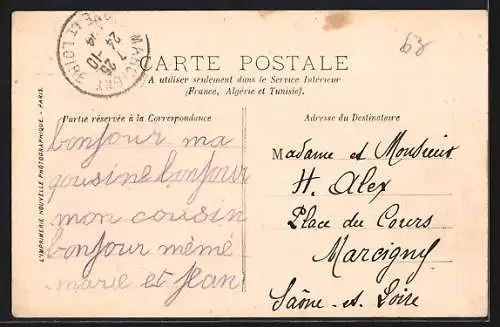 MARCIGNY
7 25
24 -10
14
SAONE ET LOIRE
63
CARTE POSTALE
A utiliser seulement dans le Service Intérieur
(France, Algérie et Tunisie).
Partie réservée à la Correspondance
Adresse du Destinataire
L'IMPRIMERIE NOUVELLE PHOTOGRAPHIQUE. - PARIS.
bonjour ma
gousine bonjour
mon cousin
bonjour mémé
marie et jean
Madame et Monsieur
H. Alex
Place du Cours
Marcigny
Saône-et-Loire